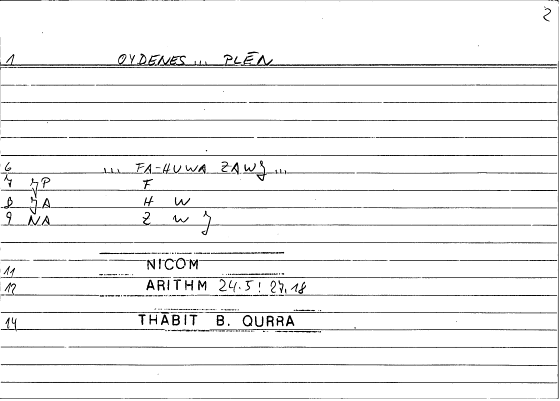 2
1 OYDENES ... PLĒN
6 ... FA-HUWA ZAWJ ...
7 JP F
8 JA H W
9 NA Z W J
11 NICOM
12 ARITHM 24.5! 27,18
14 THABIT B. QURRA